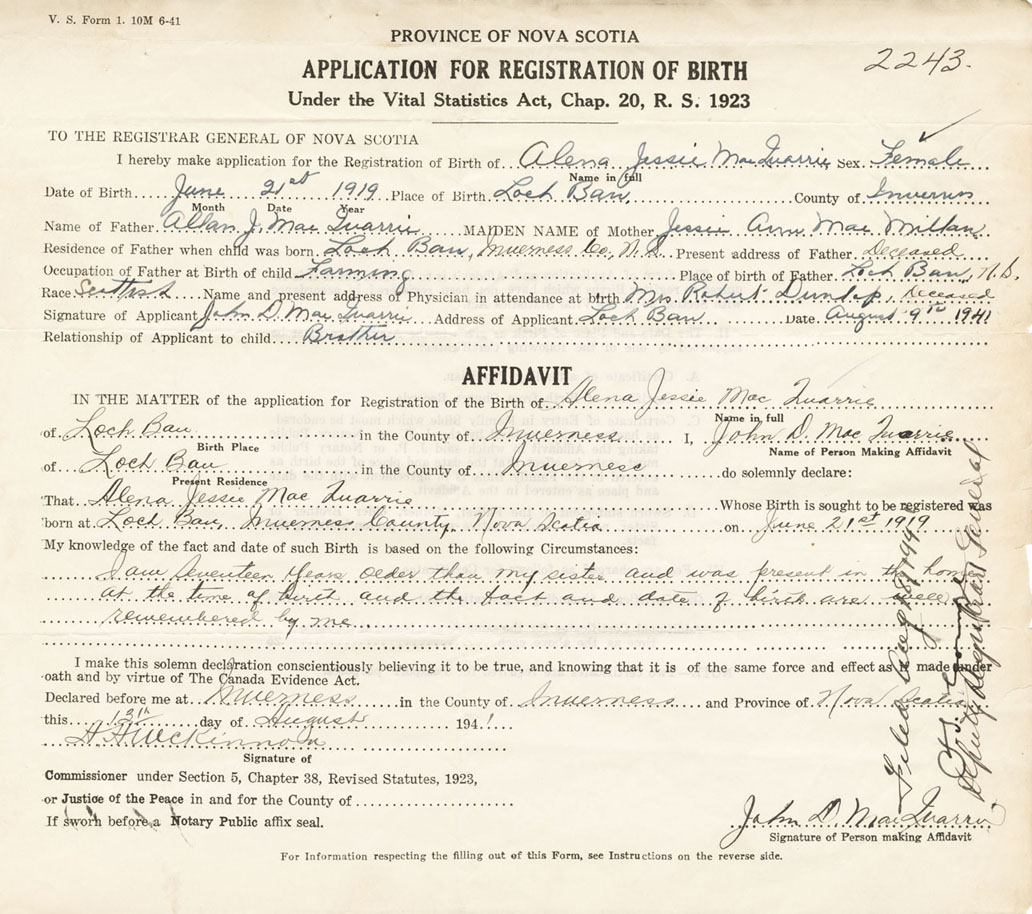 V. S. Form 1. 10M 6-41
PROVINCE OF NOVA SCOTIA
2243.
APPLICATION FOR REGISTRATION OF BIRTH
Under the Vital Statistics Act, Chap. 20, R. S. 1923
TO THE REGISTRAR GENERAL OF NOVA SCOTIA
I hereby make application for the Registration of Birth of Alena Jessie Mac Quarrie Sex Female
Name in full
Date of Birth June 21st 1919 Place of Birth Loch Ban County of Inverness
Month Date Year
Name of Father Allan J. Mac Quarrie MAIDEN NAME of Mother Jessie Ann Mac Millan
Residence of Father when child was born Loch Ban, Inverness Co, N.S. Present address of Father Deceased
Occupation of Father at Birth of child Farming Place of birth of Father Loch Ban, N.S.
Race Scottish Name and present address of Physician in attendance at birth Mrs. Robert Dunlop, Deceased
Signature of Applicant John D. Mac Quarrie Address of Applicant Loch Ban Date August 9th 1941
Relationship of Applicant to child Brother
AFFIDAVIT
IN THE MATTER of the application for Registration of the Birth of Alena Jessie Mac Quarrie
Name in full
of Loch Ban in the County of Inverness I, John D. Mac Quarrie
Birth Place Name of Person Making Affidavit
of Loch Ban in the County of Inverness do solemnly declare:
Present Residence
That Alena Jessie Mac Quarrie Whose Birth is sought to be registered was
born at Loch Ban, Inverness County, Nova Scotia on June 21st 1919
My knowledge of the fact and date of such Birth is based on the following Circumstances:
I am seventeen years older than my sister and was present in the home
at the time of birth and the fact and date of birth are well
remembered by me
I make this solemn declaration conscientiously believing it to be true, and knowing that it is of the same force and effect as if made under
oath and by virtue of The Canada Evidence Act.
Declared before me at Inverness in the County of Inverness and Province of Nova Scotia
this 13th day of August 1941
Signature of
Commissioner under Section 5, Chapter 38, Revised Statutes, 1923,
or Justice of the Peace in and for the County of
If sworn before a Notary Public affix seal.
John D. Mac Quarrie
Signature of Person making Affidavit
For Information respecting the filling out of this Form, see Instructions on the reverse side.
Filed Aug
Deputy Registrar General